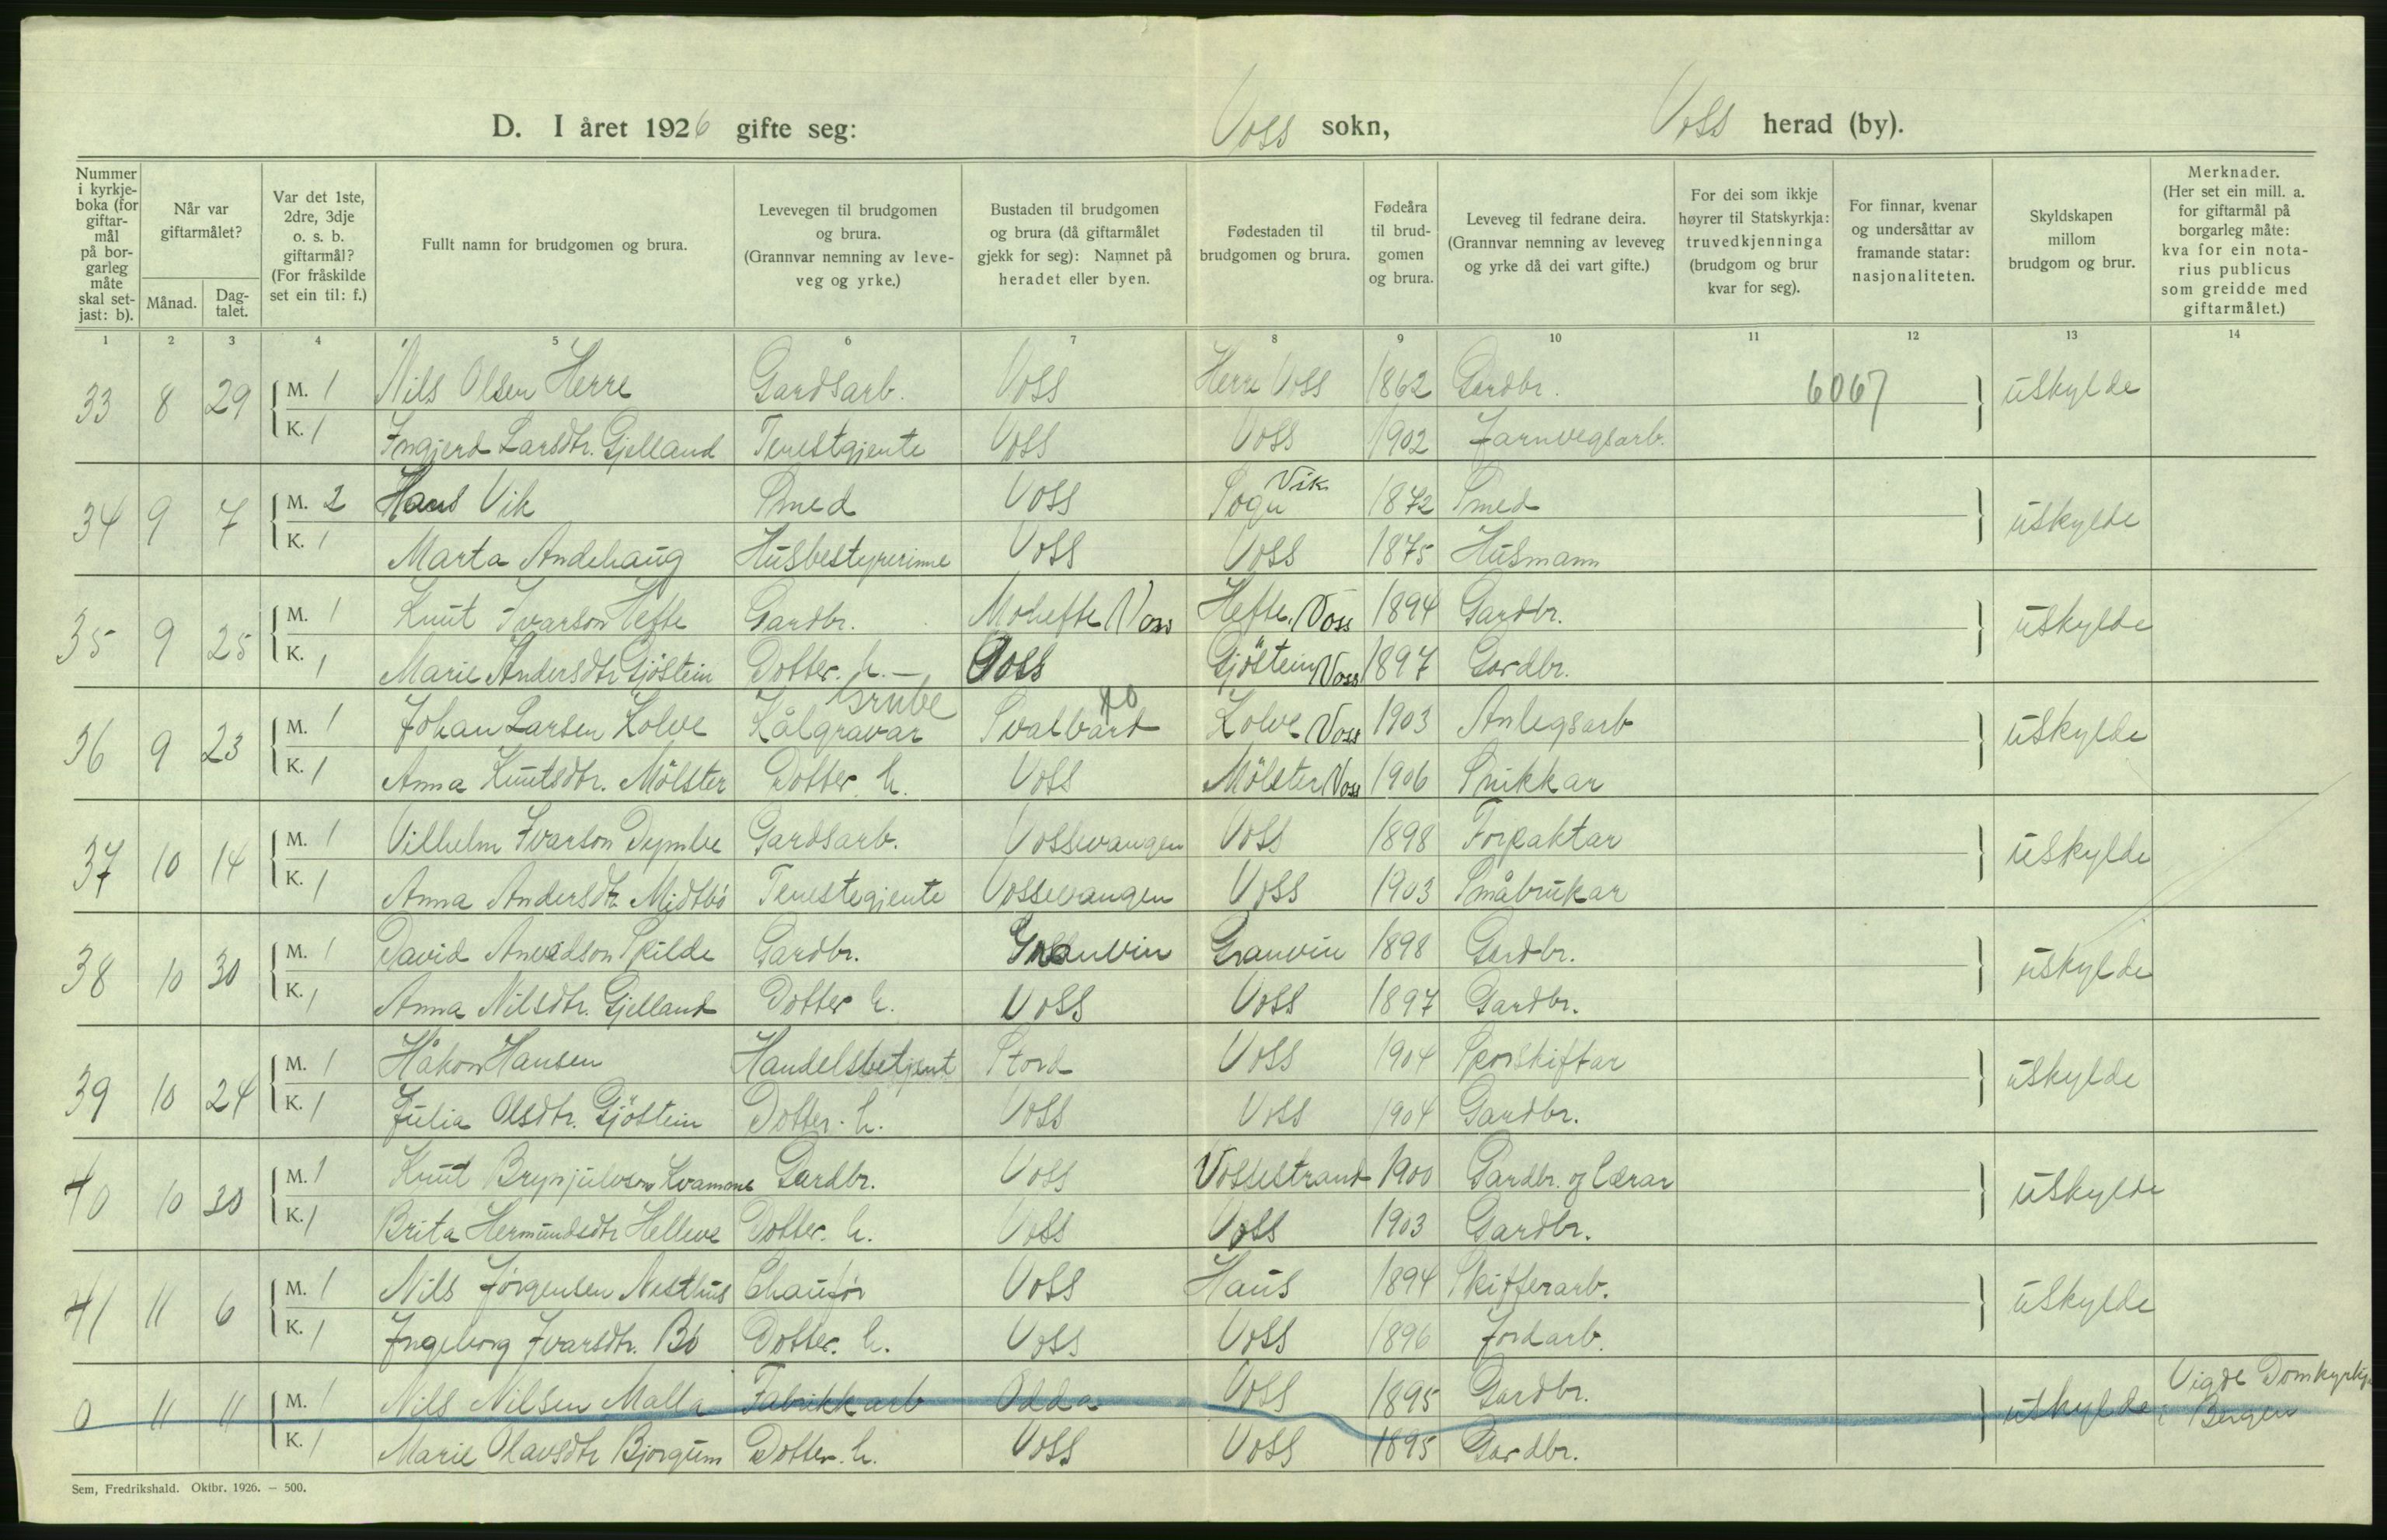 D. I året 1926 gifte seg: Voss sokn, Voss herad (by).
Nummer i kyrkje-boka (for giftar-mål på bor-garleg måte skal set-jast: b).
Når var giftarmålet?
Månad.
Dag-talet.
Var det 1ste, 2dre, 3dje o. s. b. giftarmål? (For fråskilde set ein til: f.)
Fullt namn for brudgomen og brura.
Levevegen til brudgomen og brura. (Grannvar nemning av leve-veg og yrke.)
Bustaden til brudgomen og brura (då giftarmålet gjekk for seg): Namnet på heradet eller byen.
Fødestaden til brudgomen og brura.
Fødeåra til brud-gomen og brura.
Leveveg til fedrane deira. (Grannvar nemning av leveveg og yrke då dei vart gifte.)
For dei som ikkje høyrer til Statskyrkja: truvedkjenninga (brudgom og brur kvar for seg).
For finnar, kvenar og undersåttar av framande statar: nasjonaliteten.
Skyldskapen millom brudgom og brur.
Merknader. (Her set ein mill. a. for giftarmål på borgarleg måte: kva for ein nota-rius publicus som greidde med giftarmålet.)
1 2 3 4 5 6 7 8 9 10 11 12 13 14
33 8 29 M. 1 Nils Olsen Herre Gardsarb. Voss Herre Voss 1862 Gardbr. 6067 uskylde
K. 1 Ingjerd Larsdtr. Gjelland Tenestgjente Voss Voss 1902 Jarnvegsarb.
34 9 7 M. 2 Hans Vik Smed Voss Sogn Vik 1872 Smed uskylde
K. 1 Marta Andehaug Husbestyrerinne Voss Voss 1875 Husmann
35 9 25 M. 1 Knut Ivarson Hefte Gardbr. Mohefte Voss Hefte, Voss 1894 Gardbr. uskylde
K. 1 Marie Andersdtr Gjöstein Dotter. h. — Voss Gjöstein Voss 1897 Gardbr.
36 9 23 M. 1 Johan Larsen Kolve Kålgravar Grube Svalbard Kolve Voss 1903 Anlegsarb uskylde
K. 1 Anna Knutsdtr. Mölster Dotter h. Voss Mölster Voss 1906 Snikkar
37 10 14 M. 1 Vilhelm Ivarson Dymbe Gardsarb. Vossevangen Voss 1898 Forpaktar uskylde
K. 1 Anna Andersdtr Midtbö Tenestegjente Vossevangen Voss 1903 Småbrukar
38 10 30 M. 1 David Skilde Gardbr. Granvin Granvin 1898 Gardbr. uskylde
K. 1 Anna Nilsdtr. Gjelland Dotter h. Voss Voss 1897 Gardbr.
39 10 24 M. 1 Håkon Hansen Handelsbetjent Stord Voss 1904 Sporskiftar uskylde
K. 1 Julia Olsdtr. Gjöstein Dotter. h. Voss Voss 1904 Gardbr.
40 10 30 M. 1 Knut Brynjulvson Kvamme Gardbr. Voss Vossestrand 1900 Gardbr. og lærar uskylde
K. 1 Brita Hermundsdtr Helleve Dotter. h. Voss Voss 1903 Gardbr.
41 11 6 M. 1 Nils Jörgensen Nesthus Chaufør Voss Haus 1894 Skifferarb. uskylde
K. 1 Ingeborg Ivarsdtr. Bö Dotter. h. Voss Voss 1896 Jordarb.
0 11 11 M. 1 Nils Nilsen Malla Fabrikkarb Odda Voss 1895 Gardbr. uskylde Vigde Domkyrkja i Bergen
K. 1 Marie Olavsdtr Bjørgum Dotter. h. Voss Voss 1895 Gardbr.
Sem, Fredrikshald. Oktbr. 1926. — 500.